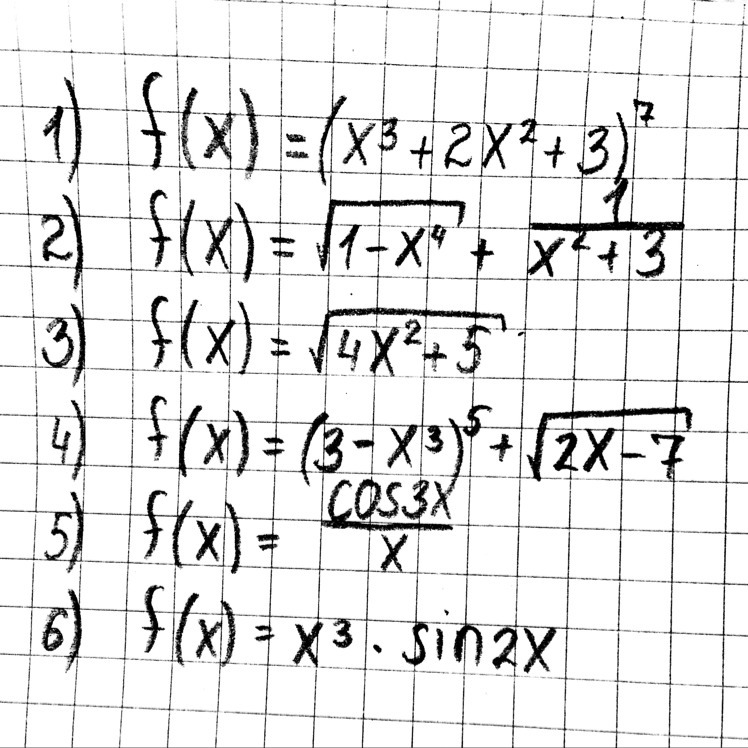 1) f(x) = (x³ + 2x² + 3)⁷
2) f(x) = √(1 - x⁴) + 1/(x² + 3)
3) f(x) = √(4x² + 5)
4) f(x) = (3 - x³)⁵ + √(2x - 7)
5) f(x) = cos3x/x
6) f(x) = x³ · sin2x